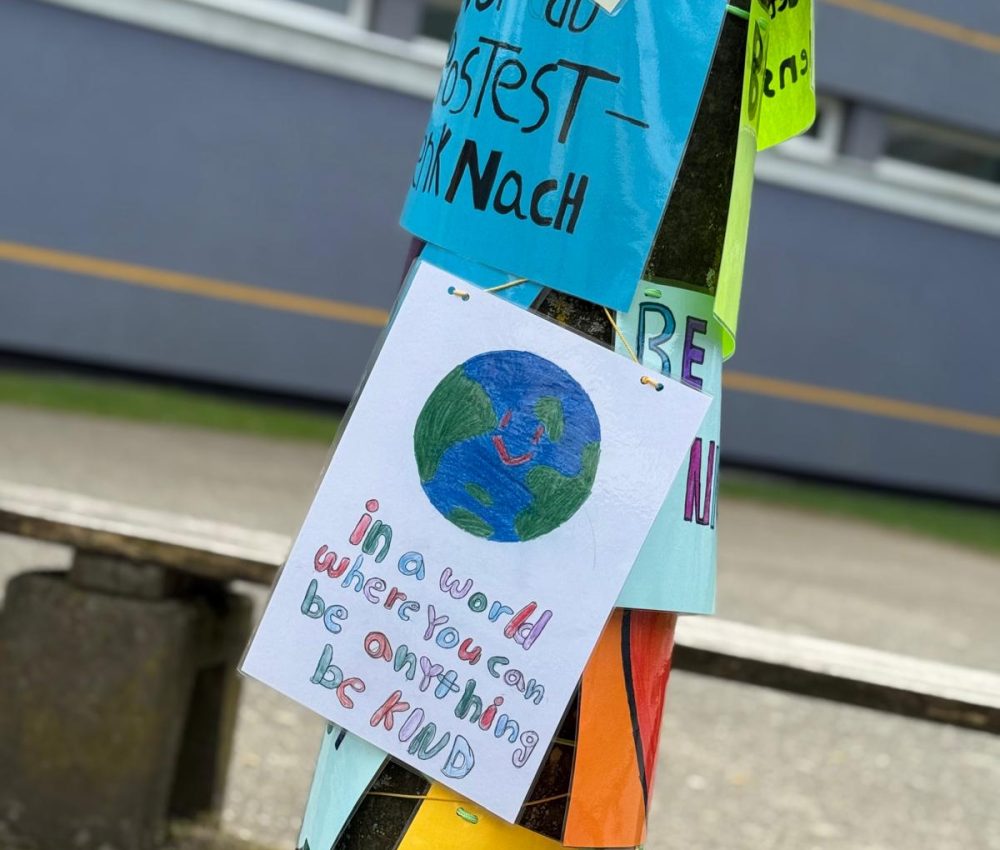 du
PosTesT-
NacH
BE
in a world
where you can
be anything
be KIND